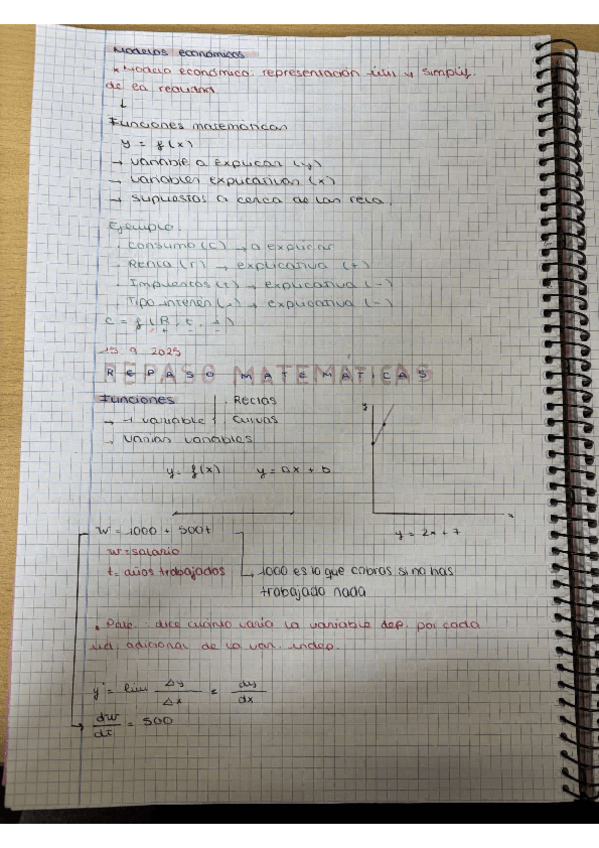 Modelos económicos
* Modelo económico: representación útil y simplif.
de la realidad
↓
Funciones matemáticas
y = f(x)
→ variable a explicar (y)
→ variables explicativas (x)
→ supuestos a cerca de las rela.
Ejemplo:
· Consumo (C) → a explicar
· Renta (r) → explicativa (+)
· Impuestos (t) → explicativa (-)
· Tipo interés (i) → explicativa (-)
C = f(R, t, i)
+ - -
15 9 2025
REPASO MATEMÁTICAS
Funciones
· Rectas
→ 1 variable
· Curvas
→ varias variables
y = f(x) y = ax + b
y
x
y = 2x + 7
w = 1000 + 500t
w = salario
t = años trabajados
→ 1000 es lo que cobras si no has
trabajado nada
· dice cuánto varía la variable dep. por cada
ud. adicional de la var. indep.
y' = lim Δy/Δx = dy/dx
dw/dt = 500